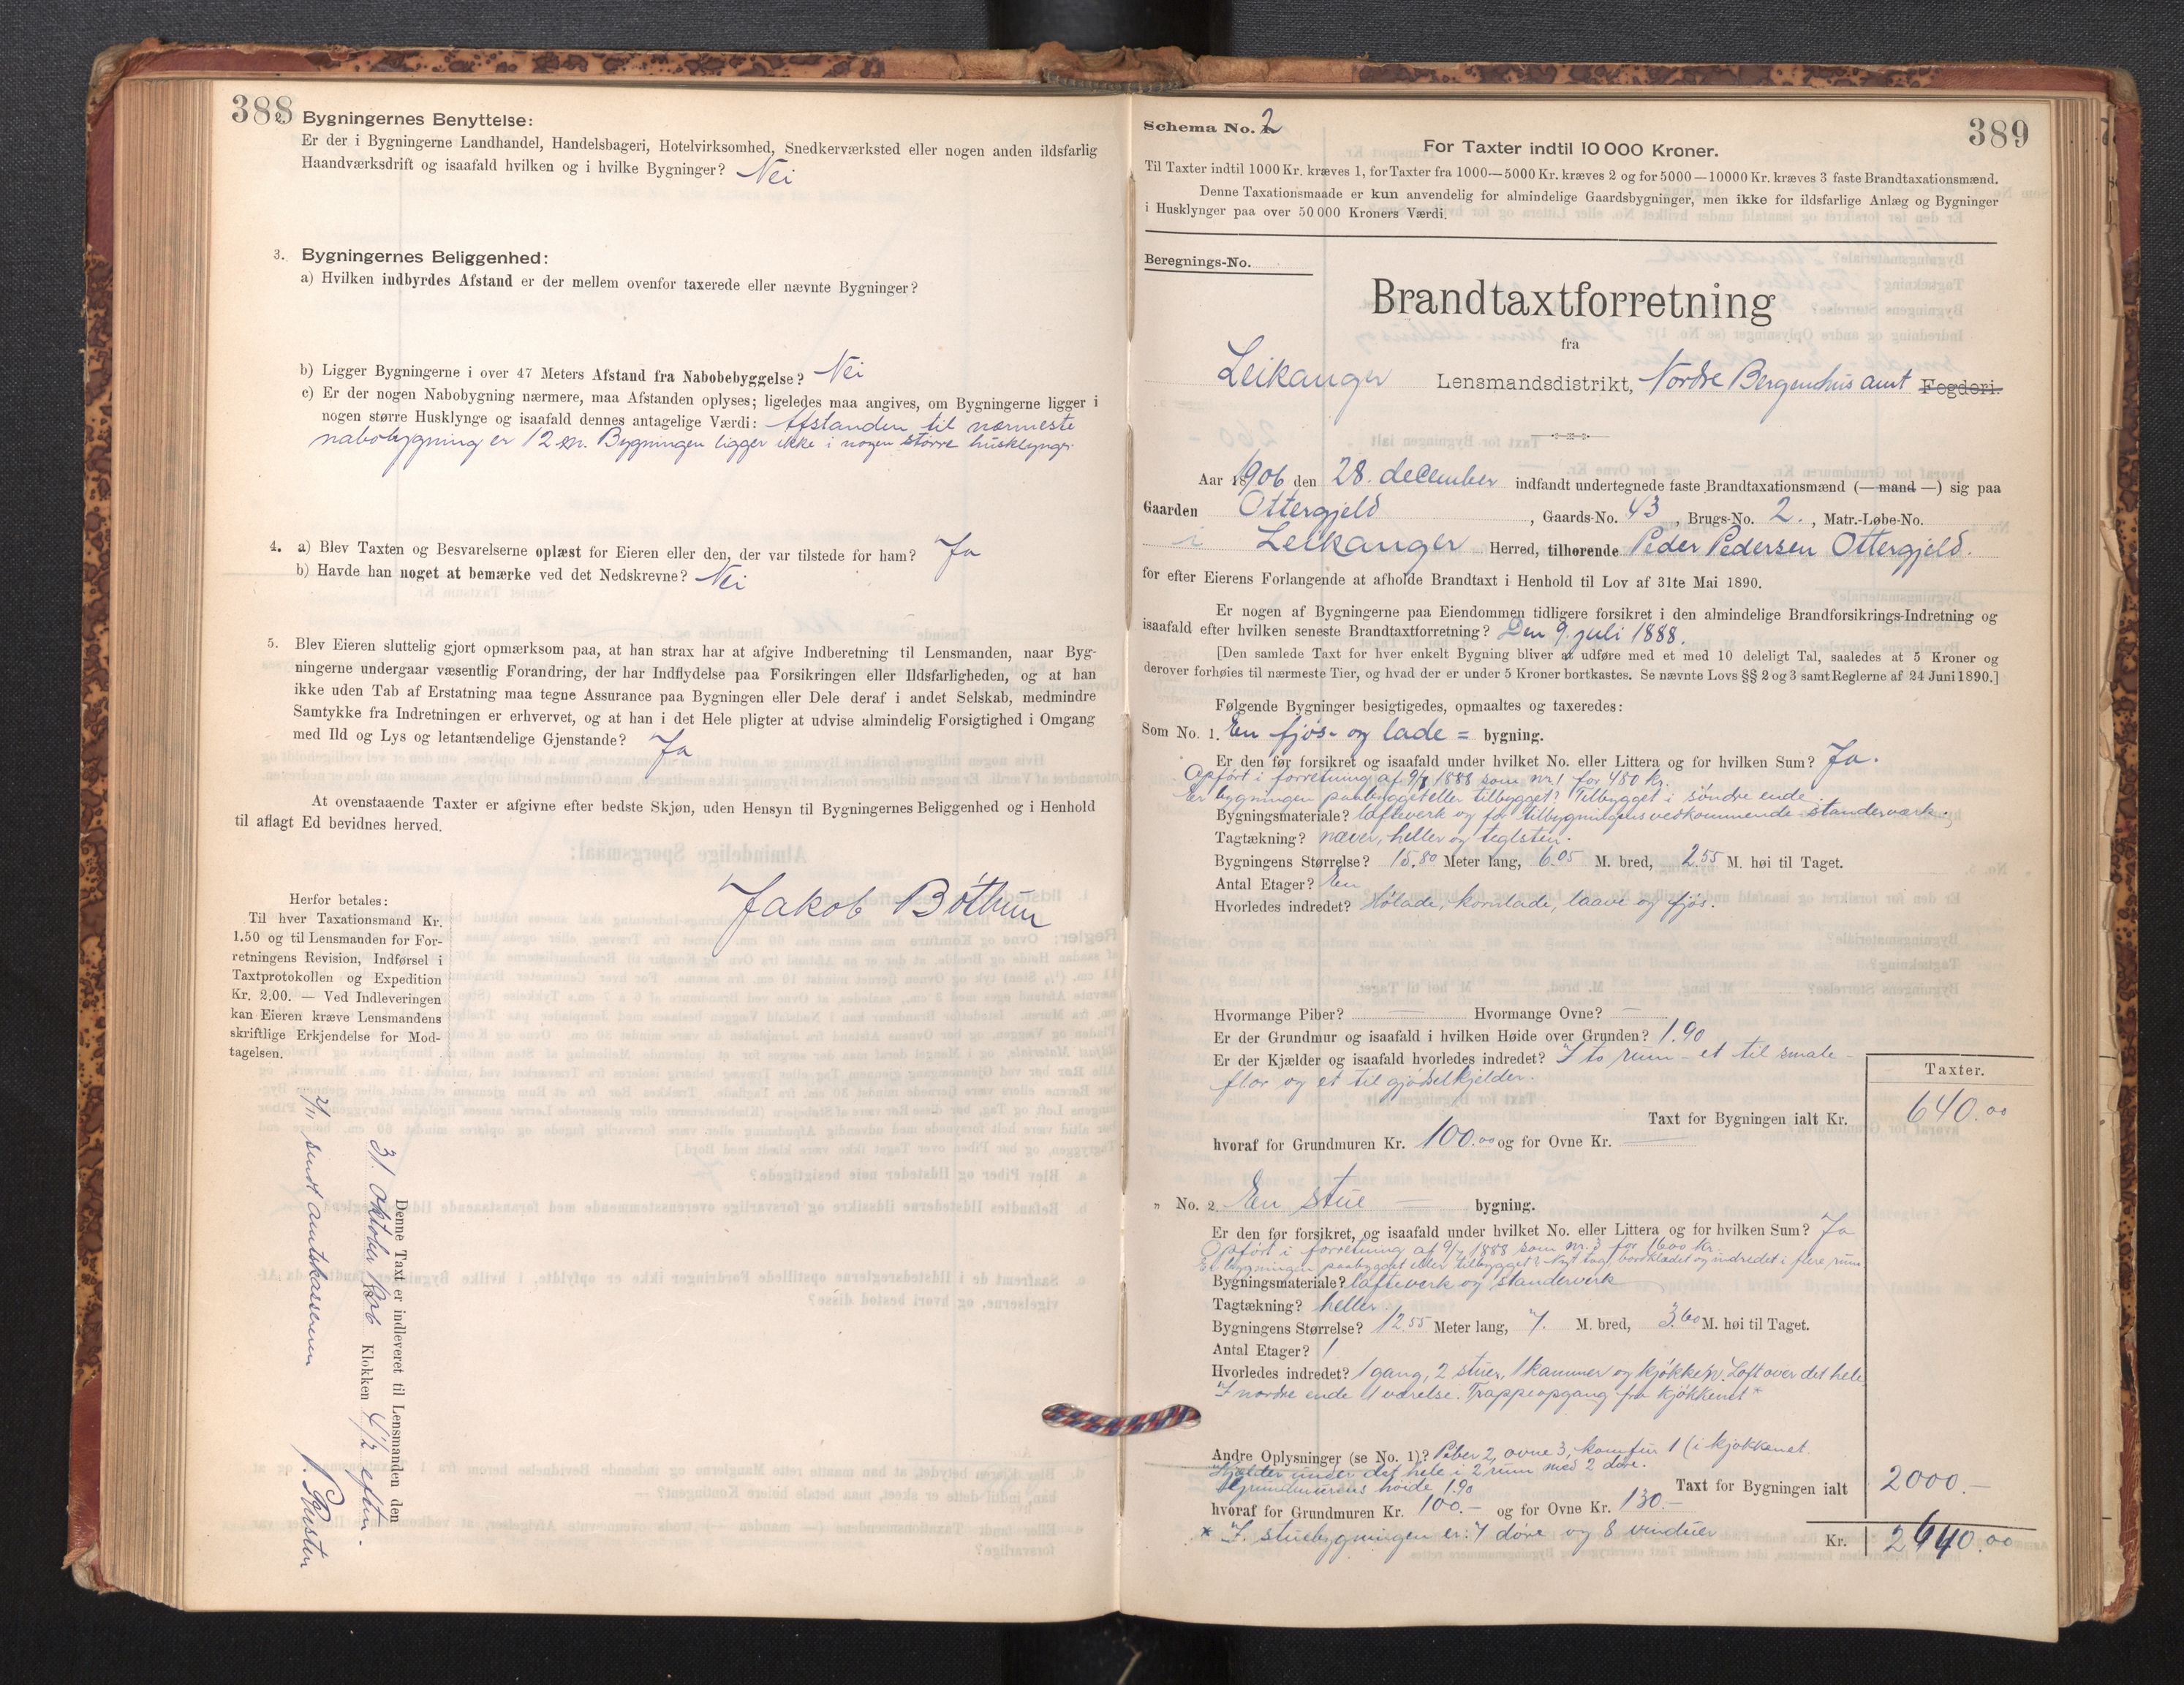 388
2. Bygningernes Benyttelse:
Er der i Bygningerne Landhandel, Handelsbageri, Hotelvirksomhed, Snedkerværksted eller nogen anden ildsfarlig
Haandværksdrift og isaafald hvilken og i hvilke Bygninger? Nei
3. Bygningernes Beliggenhed:
a) Hvilken indbyrdes Afstand er der mellem ovenfor taxerede eller nævnte Bygninger?
b) Ligger Bygningerne i over 47 Meters Afstand fra Nabobebyggelse? Nei
c) Er der nogen Nabobygning nærmere, maa Afstanden oplyses; ligeledes maa angives, om Bygningerne ligger i
nogen større Husklynge og isaafald dennes antagelige Værdi: Afstanden til nærmeste
nabobygning er 12 m. Bygningen ligger ikke i nogen større husklynge.
4. a) Blev Taxten og Besvarelserne oplæst for Eieren eller den, der var tilstede for ham? Ja
b) Havde han noget at bemærke ved det Nedskrevne? Nei
5. Blev Eieren sluttelig gjort opmærksom paa, at han strax har at afgive Indberetning til Lensmanden, naar Byg-
ningerne undergaar væsentlig Forandring, der har Indflydelse paa Forsikringen eller Ildsfarligheden, og at han
ikke uden Tab af Erstatning maa tegne Assurance paa Bygningen eller Dele deraf i andet Selskab, medmindre
Samtykke fra Indretningen er erhvervet, og at han i det Hele pligter at udvise almindelig Forsigtighed i Omgang
med Ild og Lys og letantændelige Gjenstande? Ja
At ovenstaaende Taxter er afgivne efter bedste Skjøn, uden Hensyn til Bygningernes Beliggenhed og i Henhold
til aflagt Ed bevidnes herved.
Jakob Bøthun
Herfor betales:
Til hver Taxationsmand Kr.
1.50 og til Lensmanden for For-
retningens Revision, Indførsel i
Taxtprotokollen og Expedition
Kr. 2.00. — Ved Indleveringen
kan Eieren kræve Lensmandens
skriftlige Erkjendelse for Mod-
tagelsen.
Denne Taxt er indleveret til Lensmanden den
31. oktober Klokken 4 1/2 efterm.
2/11 sendt amtskassereren
389
Schema No. 2
For Taxter indtil 10 000 Kroner.
Til Taxter indtil 1000 Kr. kræves 1, for Taxter fra 1000—5000 Kr. kræves 2 og for 5000—10000 Kr. kræves 3 faste Brandtaxationsmænd.
Denne Taxationsmaade er kun anvendelig for almindelige Gaardsbygninger, men ikke for ildsfarlige Anlæg og Bygninger
i Husklynger paa over 50 000 Kroners Værdi.
Beregnings-No.
Brandtaxtforretning
fra
Leikanger Lensmandsdistrikt, Nordre Bergenhus amt Fogderi.
Aar 1906 den 28. december indfandt undertegnede faste Brandtaxationsmænd (— mand —) sig paa
Gaarden Ottergjeld, Gaards-No. 43, Brugs-No. 2., Matr.-Løbe-No.
i Leikanger Herred, tilhørende Peder Pedersen Ottergjeld.
for efter Eierens Forlangende at afholde Brandtaxt i Henhold til Lov af 31te Mai 1890.
Er nogen af Bygningerne paa Eiendommen tidligere forsikret i den almindelige Brandforsikrings-Indretning og
isaafald efter hvilken seneste Brandtaxtforretning? Den 9. juli 1888.
[Den samlede Taxt for hver enkelt Bygning bliver at udføre med et med 10 deleligt Tal, saaledes at 5 Kroner og
derover forhøies til nærmeste Tier, og hvad der er under 5 Kroner bortkastes. Se nævnte Lovs §§ 2 og 3 samt Reglerne af 24 Juni 1890.]
Følgende Bygninger besigtigedes, opmaaltes og taxeredes:
Som No. 1. En fjøs- og lade = bygning.
Er den før forsikret og isaafald under hvilket No. eller Littera og for hvilken Sum? Ja.
Opført i forretning af 9/7 1888 som nr. 1 for 480 kr.
Er bygningen paabygget eller tilbygget? Tilbygget i søndre ende.
Bygningsmateriale? lafteverk og for tilbygningens vedkommende standerværk.
Tagtækning? næver, heller og teglsten.
Bygningens Størrelse? 15.80 Meter lang, 6.05 M. bred, 2.55 M. høi til Taget.
Antal Etager? En
Hvorledes indredet? Hølade, kornlade, laave og fjøs.
Hvormange Piber? — Hvormange Ovne? —
Er der Grundmur og isaafald i hvilken Høide over Grunden? 1.90
Er der Kjælder og isaafald hvorledes indredet? I to rum – et til smale-
flor og et til gjødselkjelder.
Taxter.
Taxt for Bygningen ialt Kr. 640.00
hvoraf for Grundmuren Kr. 100.00 og for Ovne Kr. —
" No. 2. En stue — bygning.
Er den før forsikret, og isaafald under hvilket No. eller Littera og for hvilken Sum? Ja
Opført i forretning af 9/7 1888 som nr. 3 for 1600 kr.
Er bygningen paabygget eller tilbygget? Nyt tag, bordklædet og indredet i flere rum
Bygningsmateriale? lafteverk og standerverk
Tagtækning? heller
Bygningens Størrelse? 12.55 Meter lang, 7. M. bred, 3.60 M. høi til Taget.
Antal Etager? 1
Hvorledes indredet? 1 gang, 2 stuer, 1 kammer og kjøkken. Loft over det hele
I nordre ende 1 værelse. Trappeopgang fra kjøkkenet *
Andre Oplysninger (se No. 1)? Piber 2, ovne 3, komfur 1 (i kjøkkenet.
Kjælder under det hele i 2 rum med 2 døre.
Grundmurens høide 1.90
Taxt for Bygningen ialt 2000.—
hvoraf for Grundmuren Kr. 100.— og for Ovne Kr. 130.—
* I stuebygningen er: 7 døre og 8 vinduer
Kr. 2640.00